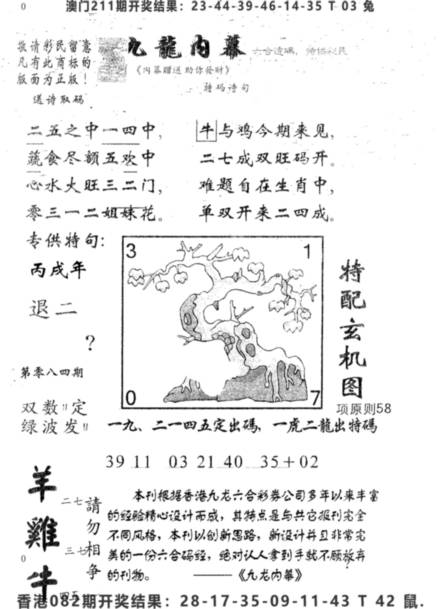 0 澳门211期开奖结果：23-44-39-46-14-35 T 03 兔
敬请彩民留意
凡有此商标的
版面为正版！
九龍內幕
六合透碼，
《內幕赠送 助你發财》
送诗取码
特码诗句
二五之中一四中，
牛与鸡今期来见，
蔬食尽额五欢中
二七成双旺码开。
心水大旺三二门，
难题自在生肖中，
零三一二姐妹花。
单双开来二四成。
专供特句：
丙戌年
退二
？
第零八四期
双数〃定
绿波发〃
3 1
0 7
特配玄机图
项原则58
一九、二一四五定出碼，一虎二龍出特碼
39 11 03 21 40 35+02
羊雞牛
二七
三七
四五
請勿相争
本刊根据香港九龙六合彩券公司多年以来丰富
的经验精心设计而威，其特点是与共它报刊完全
不同风格，本刊以创新思路，新设计并且非常完
美的一份六合码经，绝对认人拿到手就不顾放弃
的刊物。 ——《九龙内幕》
香港082期开奖结果：28-17-35-09-11-43 T 42 鼠.